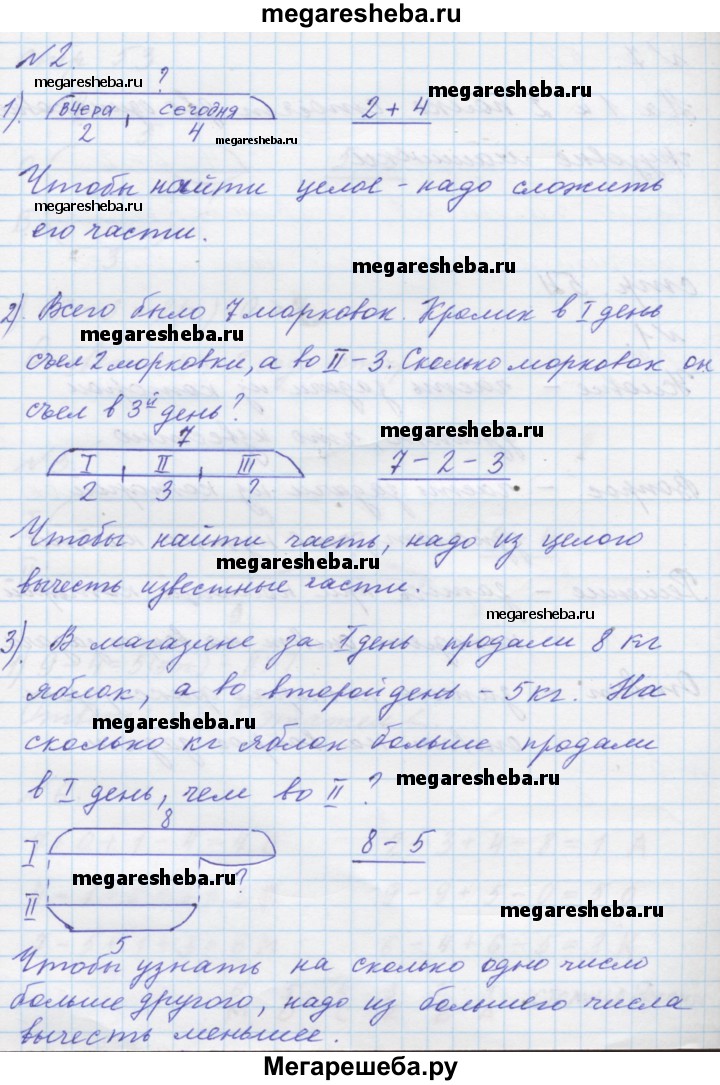 megaresheba.ru
№2.
megaresheba.ru
?
1). вчера сегодня 2 + 4
2 4 megaresheba.ru
Чтобы найти целое - надо сложить
megaresheba.ru
его части.
megaresheba.ru
2). Всего было 7 морковок. Кролик в I день
megaresheba.ru
съел 2 морковки, а во II - 3. Сколько морковок он
съел в 3й день?
7 megaresheba.ru
I II III 7 - 2 - 3
2 3 ?
Чтобы найти часть, надо из целого
megaresheba.ru
вычесть известные части.
megaresheba.ru
3). В магазине за I день продали 8 кг
яблок, а во второй день - 5 кг. На
megaresheba.ru
сколько кг яблок больше продали
в I день, чем во II ?
megaresheba.ru
8
I 8 - 5
megaresheba.ru ?
II megaresheba.ru
5
Чтобы узнать на сколько одно число
больше другого, надо из большего числа
вычесть меньшее.
Мегарешеба.ру